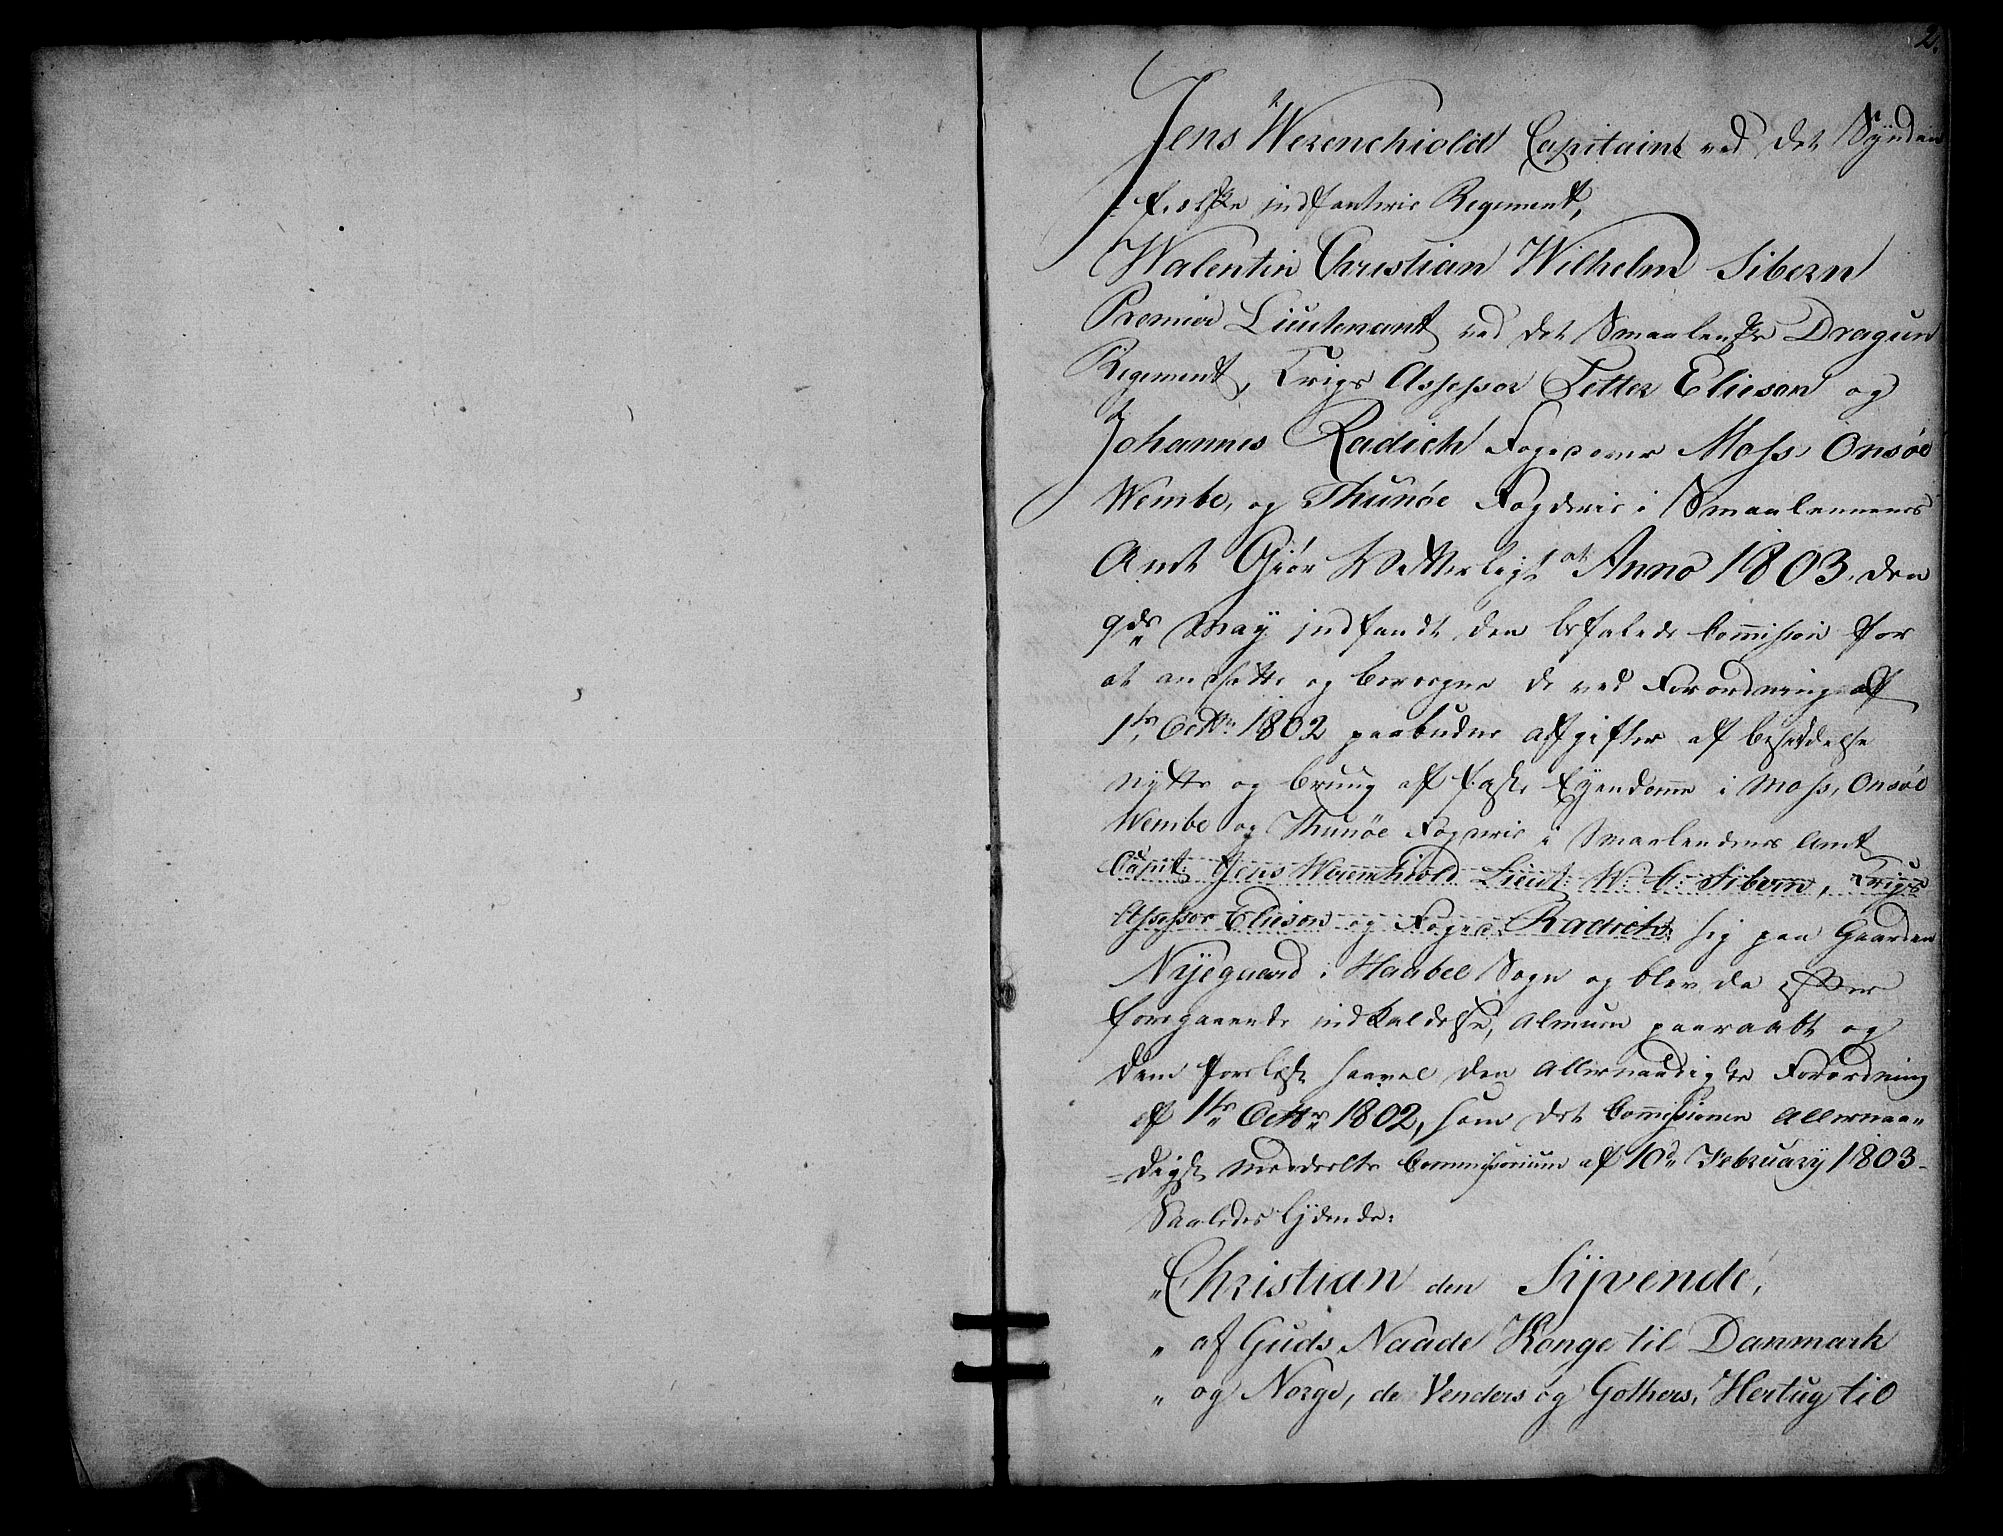 2.
Jens Werenchiold Capitaine ved det Synden
=fielske indfanterie Regiment,
Walentin Christian Wilhelm Sibern
Premier Lieutenant ved det Smaalenske Dragun
Regement, Krigs Assessor Petter Elieson og
Johannes Radich Foged over Moss Onsøe
Wembe, og Thunøe Fogderie i Smaalennenes
Amt Giør Witterligt at Anno 1803. den
9de May indfandt den befalede Commission for
at ansætte og beregne de ved Forordning af
1ste Octbr 1802 paabudne afgifter af besiddelse
nytte og brug af faste Eyendomme i Moss, Onsøe
Wembe og Thunøe Fogderie i Smaalendenes Amt
Capit: Jens Werenchiold Lieut: W: C: Sibern, Krigs
Assessor Elieson og Foged Radich sig paa Gaarden
Nyegaard i Haabel Sogn og blev da efter
foregaaende indkaldelse, Almuen paaraabt og
dem forelæst saavel den Allernaadigste Forordning
af 1ste Octbr 1802, som det Commissionen Allernaa=
=digst meddeelte Commissorium af 10de February 1803
Saaledes lydende:
„Christian den Syvende,
„ af Guds Naade Konge til Danmark
„ og Norge, de Venders og Gothers, Hertug til